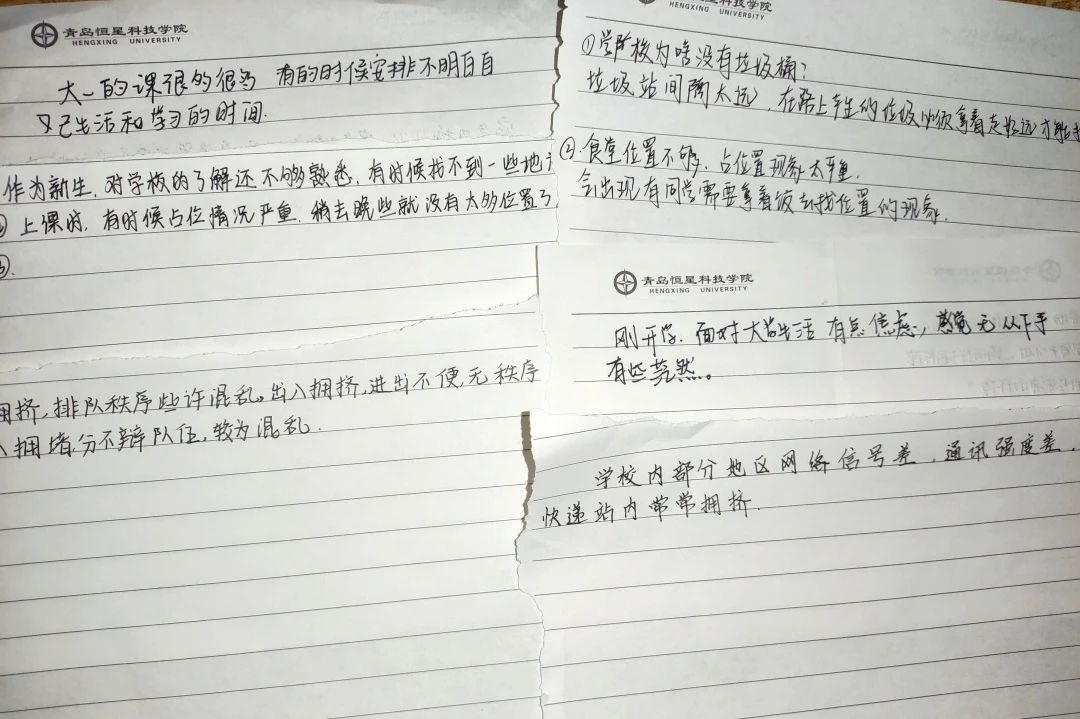 青岛恒星科技学院
HENGXING UNIVERSITY
大一的课很多很多 有的时候安排不明白自
己生活和学习的时间.
作为新生,对学校的了解还不够熟悉,有时候找不到一些地
上课时,有时候占位情况严重,稍去晚些就没有太多位置了
③.
拥挤,排队秩序些许混乱。出入拥挤,进出不便,无秩序
拥堵,分不辩队伍,较为混乱.
青岛恒星科技学院
HENGXING UNIVERSITY
①学校为啥没有垃圾桶?
垃圾站间隔太远,在路上产生的垃圾必须拿着走好远才能
②食堂位置不够,占位置现象太严重,
会出现有同学需要拿着饭去找位置的现象.
青岛恒星科技学院
HENGXING UNIVERSITY
刚开学,面对大学生活 有点焦虑,感觉无从下手
有些茫然。
学校内部分地区网络信号差,通讯强度差,
快递站内常常拥挤.